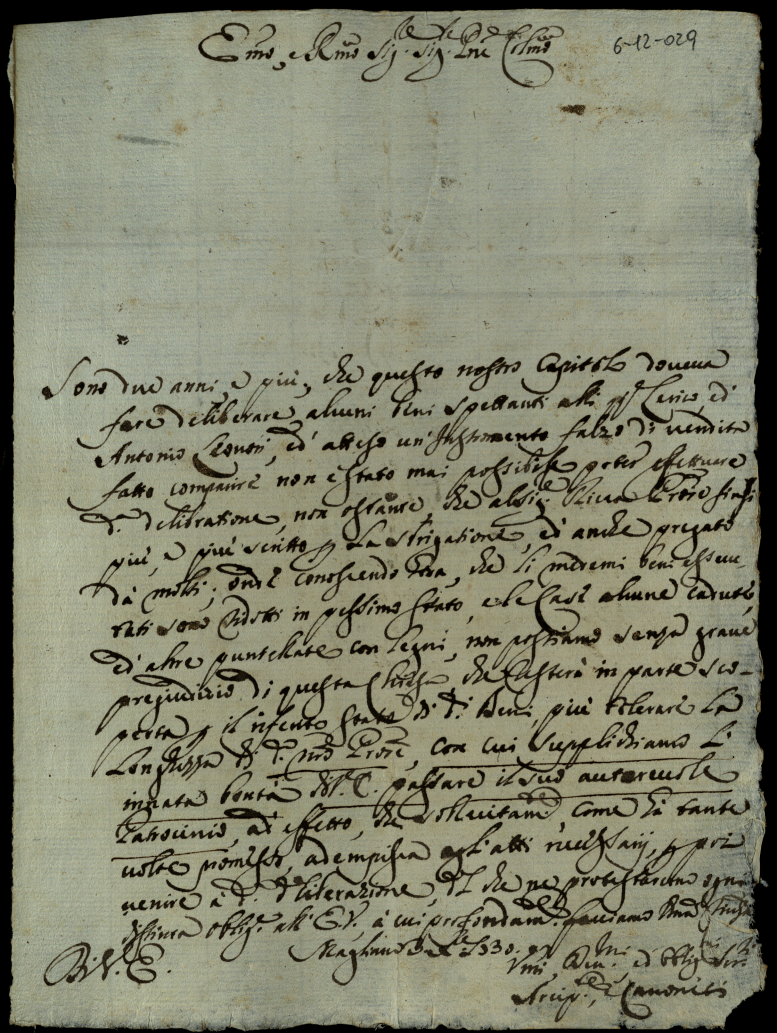 Emo, e Rmo Sig.re Sig.re Pne Colmo
6-12-029
Sono due anni e più, che questo nostro Capitolo doveva
fare deliberare alcuni beni spettanti alli ed
Antonio Leonori, ed atteso un Instromento falzo di vendita
fatto comparire non è stato mai possibile poter effettuare
d.a delibratione, non ostante, che al Sig.re
più, e più scritto p la strigatione, ed anche pregato
da molti; onde conoscendo, che li medemi beni
tati sono ridotti in pessimo stato, e le Case alcune cadute,
ed altre puntellate con legni, non possiamo senza grave
pregiudizio di questa Chiesa che resterà in parte sco-
perta p il stato di d.i Beni, più tolerare la
longhezza di d.o nro Prore, con cui supplichiamo l'
innata bontà dell'E. passare il suo autorevole
Patrocinio, ad effetto, che sollecitamte, come hà tante
volte promesso, adempisca gl'atti necessarij, p
venire à d.a deliberazione, del che ne protestaremo ogni
distinta obblig.e all'E.V., à cui profondam.te facciamo
Magliano 1730.
D.V.E.
Vmi, Dev.mi, ed obblig.mi Ser.ri
Arcip.te, e Canonici